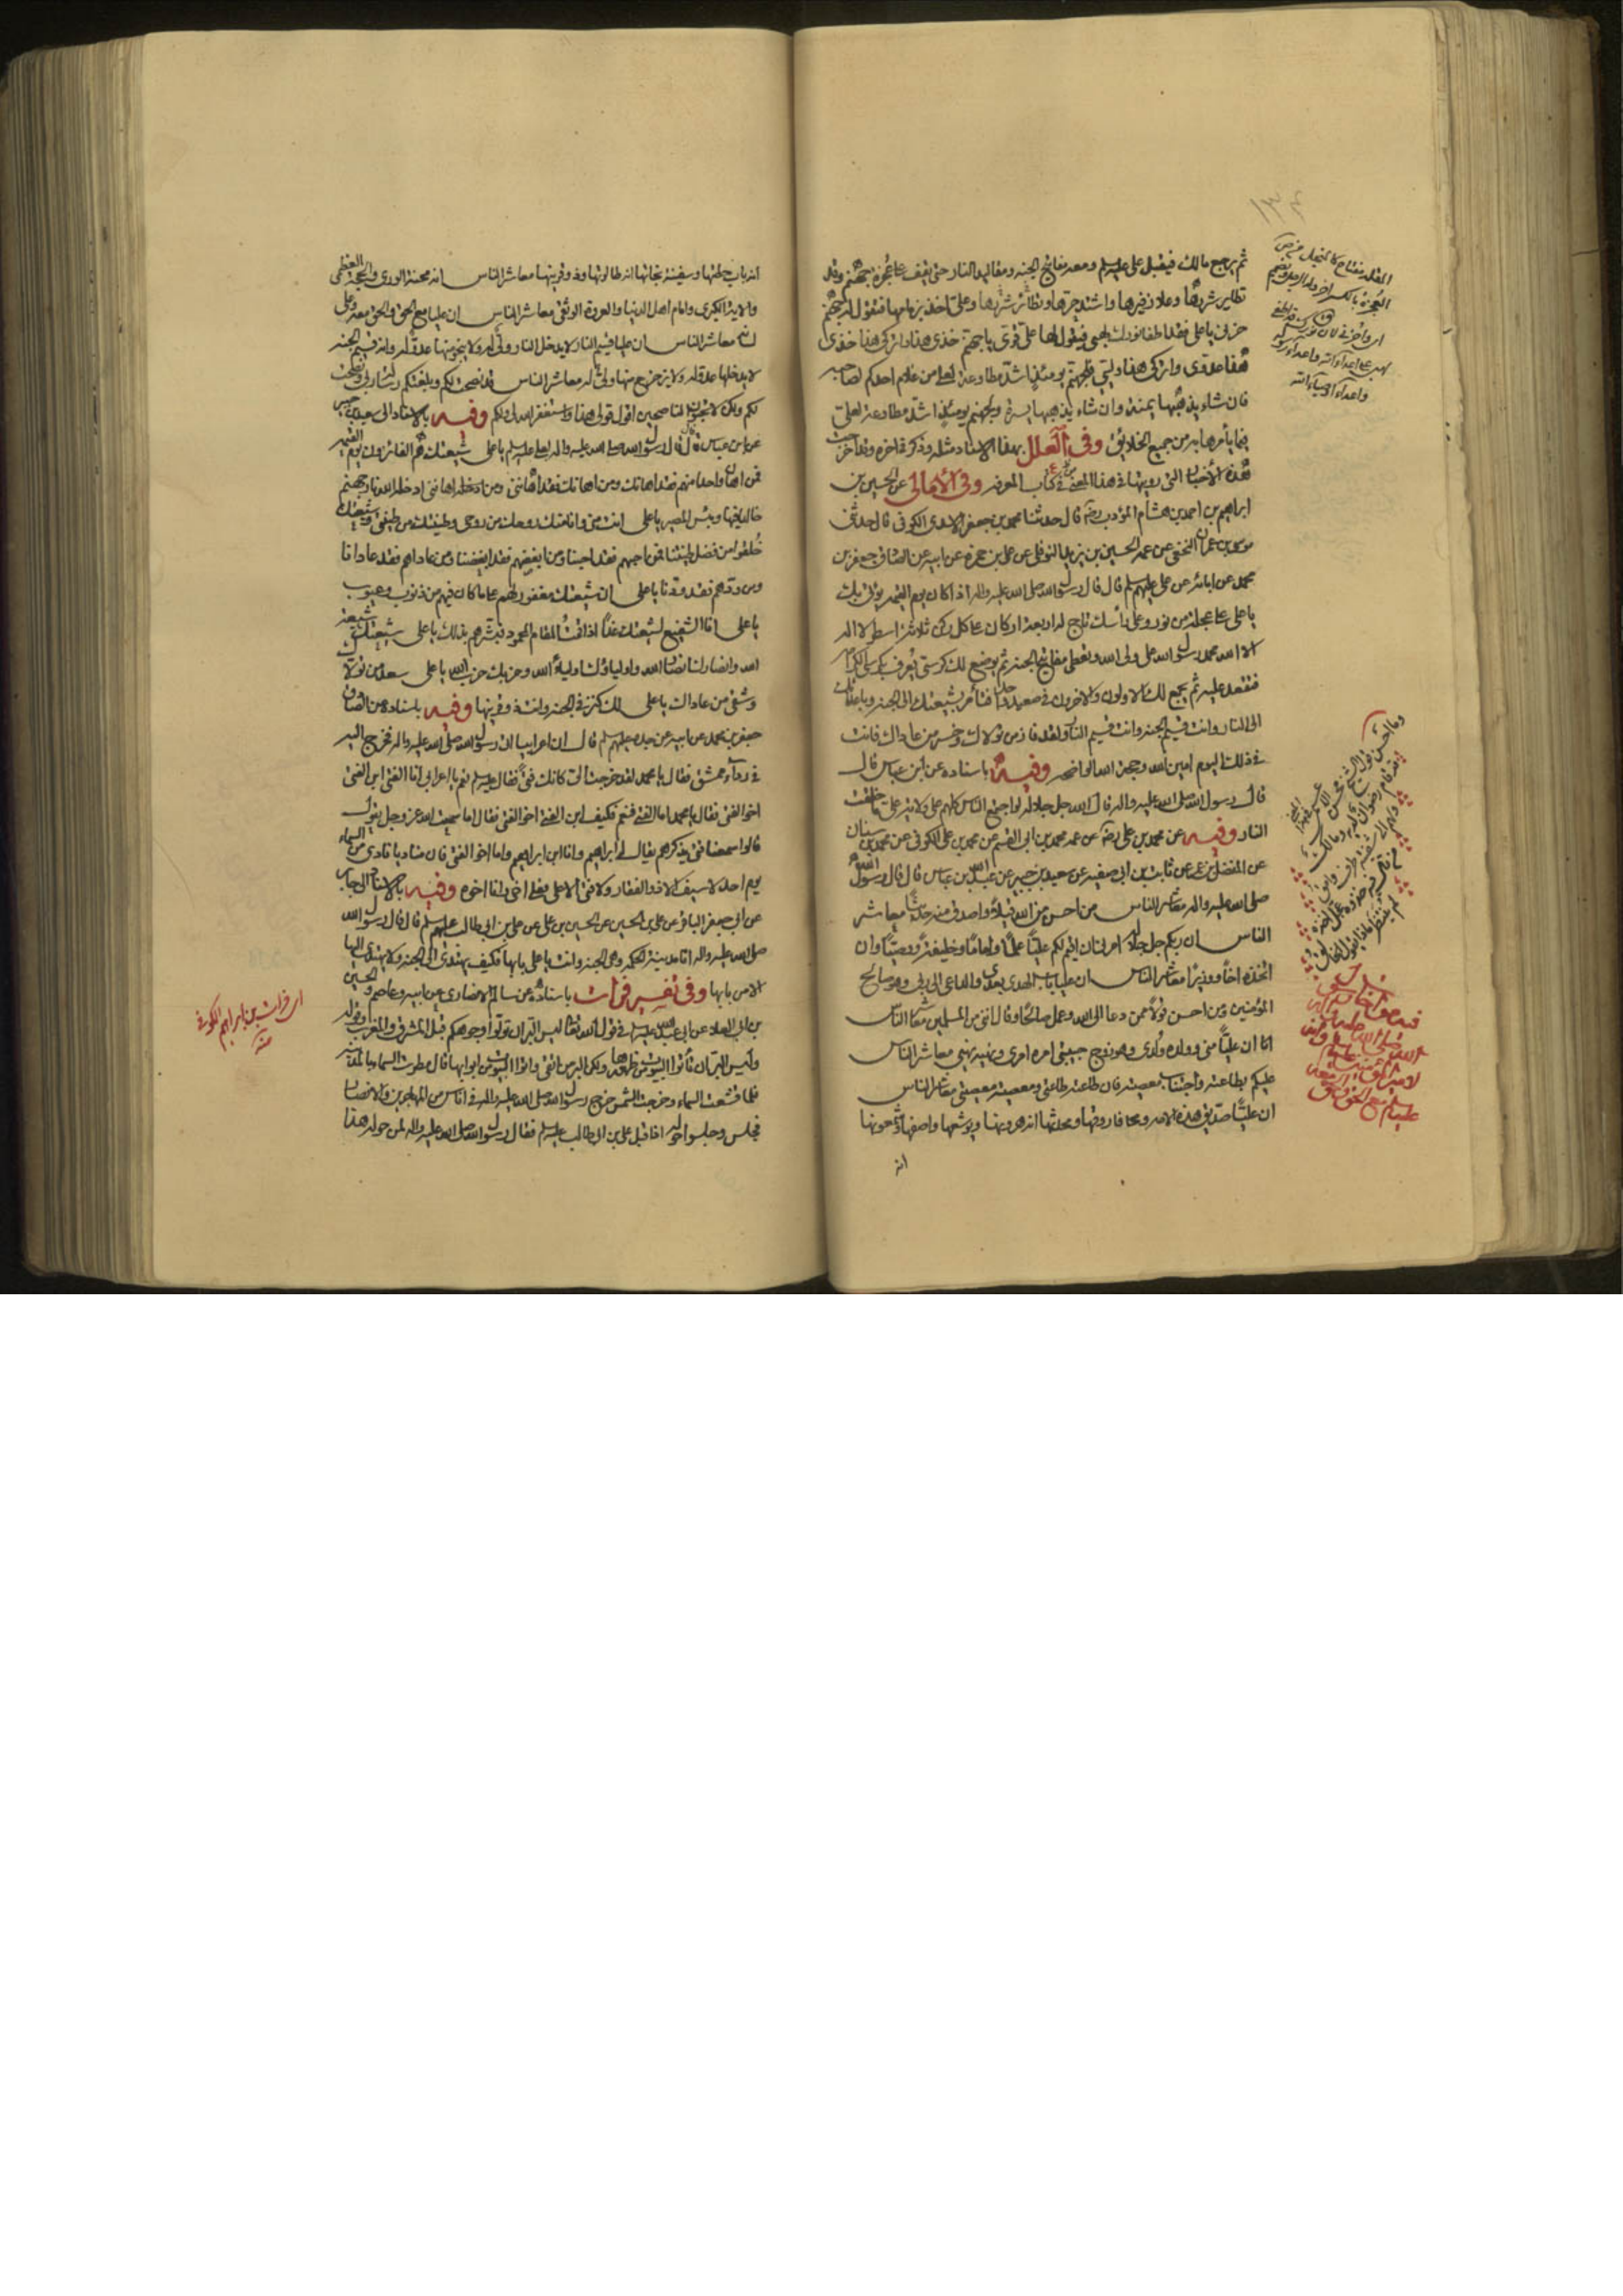 ثم يرجع مالك فيقبل علي عليه السلم ومعه مفاتيح الجنه ومقاليد النار حتى يقف على عجزة جهنم وقد
تطاير شررها وعلا زفيرها واشتد حرها وتطاير شررها وعلي اخذ بزمامها فتقول له جهنم
جزني يا علي فقد اطفا نورك لهبي فيقول لها علي قري يا جهنم خذي هذا واتركي هذا خذي
هذا عدوي واتركي هذا وليي فلجهنم يومئذ اشد مطاوعة لعلي من غلام احدكم لصاحبه
فان شاء يذهبها يمنة وان شاء يذهبها يسرة ولجهنم يومئذ اشد مطاوعة لعلي
فيما يأمرها به من جميع الخلايق وفي العلل بهذا الاسناد مثله وذكرته اخره
هذه الأخبار التي رويتها في هذا المعنى في كتاب المعرفه وفي الأمالي عن الحسين بن
ابراهيم بن احمد بن هشام المؤدب قال حدثنا محمد بن جعفر الاسدي الكوفي قال حدثني
موسى بن عمران النخعي عن عمه الحسين بن يزيد النوفلي عن علي بن حمزه عن ابيه عن الصادق جعفر بن
محمد عن ابائه عن علي عليهم السلم قال قال رسول الله صلى الله عليه واله اذا كان يوم القيمه يؤتى بك
يا علي على عجلة من نور وعلى رأسك تاج له اربعة اركان على كل ركن ثلاثة اسطر لا اله
الا الله محمد رسول الله علي ولي الله وتعطى مفاتيح الجنه ثم يوضع لك كرسي يعرف بكرسي الكرامه
فتقعد عليه ثم يجمع لك الاولون والاخرون في صعيد واحد فتأمر بشيعتك الى الجنه وباعدائك
الى النار وانت قسيم الجنه وانت قسيم النار ولقد فاز من تولاك وخسر من عاداك فانت
في ذلك اليوم امين الله وحجة الله الواضحه وفيه باسناده عن ابن عباس قال
قال رسول الله صلى الله عليه واله قال الله جل جلاله لو اجتمع الناس كلهم على ولاية علي ما خلقت
النار وفيه عن محمد بن علي عن عمه محمد بن ابي القسم عن محمد بن علي الكوفي عن محمد بن سنان
عن المفضل بن عمر عن ثابت بن ابي صفيه عن سعيد بن جبير عن عبد الله بن عباس قال قال رسول الله
صلى الله عليه واله معاشر الناس من احسن من الله قيلا واصدق منه حديثا معاشر
الناس ان ربكم جل جلاله امرني ان اقيم لكم عليا علما واماما وخليفة ووصيا وان
اتخذه اخا ووزيرا معاشر الناس ان عليا باب الهدى بعدي والداعي الى ربي وهو صالح
المؤمنين ومن احسن قولا ممن دعا الى الله وعمل صالحا وقال انني من المسلمين معاشر الناس
ان عليا مني وولده ولدي وهو زوج حبيبتي امره امري ونهيه نهيي معاشر الناس
عليكم بطاعته واجتناب معصيته فان طاعته طاعتي ومعصيته معصيتي معاشر الناس
ان عليا صديق هذه الامه وفاروقها ومحدثها انه هرونها ويوشعها واصفها وشمعونها
انه
انه باب حطتها وسفينة نجاتها انه طالوتها وذو قرنيها معاشر الناس انه محنة الورى والحجة العظمى
والاية الكبرى وامام اهل الدنيا والعروة الوثقى معاشر الناس ان عليا مع الحق والحق معه وعلى
لسانه معاشر الناس ان عليا قسيم النار لا يدخل النار ولي له ولا ينجو منها عدو له وانه قسيم الجنه
لا يدخلها عدو له ولا يزحزح منها ولي له معاشر الناس قد نصحت لكم وبلغتكم رسالة ربي ونصحت
لكم ولكن لا تحبون الناصحين اقول قولي هذا واستغفر الله لي ولكم وفيه بالاسناد الى سعيد بن جبير
عن ابن عباس قال قال رسول الله صلى الله عليه واله لعلي عليه السلم يا علي شيعتك هم الفائزون يوم القيمه
فمن اهان واحدا منهم فقد اهانك ومن اهانك فقد اهانني ومن اهانني ادخله الله نار جهنم
خالدا فيها وبئس المصير يا علي انت مني وانا منك روحك من روحي وطينتك من طينتي وشيعتك
خلقوا من فضل طينتنا فمن احبهم فقد احبنا ومن ابغضهم فقد ابغضنا ومن عاداهم فقد عادانا
ومن ودهم فقد ودنا يا علي ان شيعتك مغفور لهم على ما كان فيهم من ذنوب وعيوب
يا علي انا الشفيع لشيعتك غدا اذا قمت المقام المحمود فبشرهم بذلك يا علي شيعتك شيعة
الله وانصارك انصار الله واولياؤك اولياء الله وحزبك حزب الله يا علي سعد من تولاك
وشقي من عاداك يا علي لك كنز في الجنه وانت ذو قرنيها وفيه باسناده عن الصادق
جعفر بن محمد عن ابيه عن جده عليهم السلم قال ان اعرابيا اتى رسول الله صلى الله عليه واله فخرج اليه
في رداء ممشق فقال يا محمد لقد خرجت الي كانك فتى فقال عليه السلم نعم يا اعرابي انا الفتى ابن الفتى
اخو الفتى فقال يا محمد اما الفتى فنعم فكيف ابن الفتى اخو الفتى فقال اما سمعت الله عز وجل يقول
قالوا سمعنا فتى يذكرهم يقال له ابراهيم وانا ابن ابراهيم واما اخو الفتى فان مناديا نادى من السماء
يوم احد لا سيف الا ذو الفقار ولا فتى الا علي فعلي اخي وانا اخوه وفيه بالاسناد الى جابر
عن ابي جعفر الباقر عن علي بن الحسين عن الحسين بن علي عن علي بن ابي طالب عليهم السلم قال قال رسول الله
صلى الله عليه واله انا مدينة الحكمه وهي الجنه وانت يا علي بابها فكيف يهتدي الى الجنه ولا يهتدى اليها
الا من بابها وفي تفسير فرات باسناده عن سالم الانصاري عن ابيه وعاصم والحسين
بن ابي العلاء عن ابي عبد الله عليه السلم في قول الله تعالى ليس البر ان تولوا وجوهكم قبل المشرق والمغرب وقوله
وليس البر بان تأتوا البيوت من ظهورها ولكن البر من اتقى وأتوا البيوت من ابوابها قال مطرت السماء بالمدينه
فلما تقشعت السماء وخرجت الشمس خرج رسول الله صلى الله عليه واله في اناس من المهاجرين والانصار
فجلس وجلسوا حوله اذ اقبل علي بن ابي طالب عليه السلم فقال رسول الله صلى الله عليه واله لمن حوله هذا
اي فرات بن ابراهيم الكوفي
منه